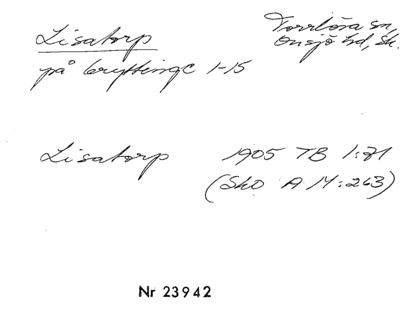 Lisatorp
Torrlösa sn,
Onsjö hd, Sk.
på Gryttinge 1-15
Lisatorp 1905 TB 1:71
(Sko A M:263)
Nr 23942